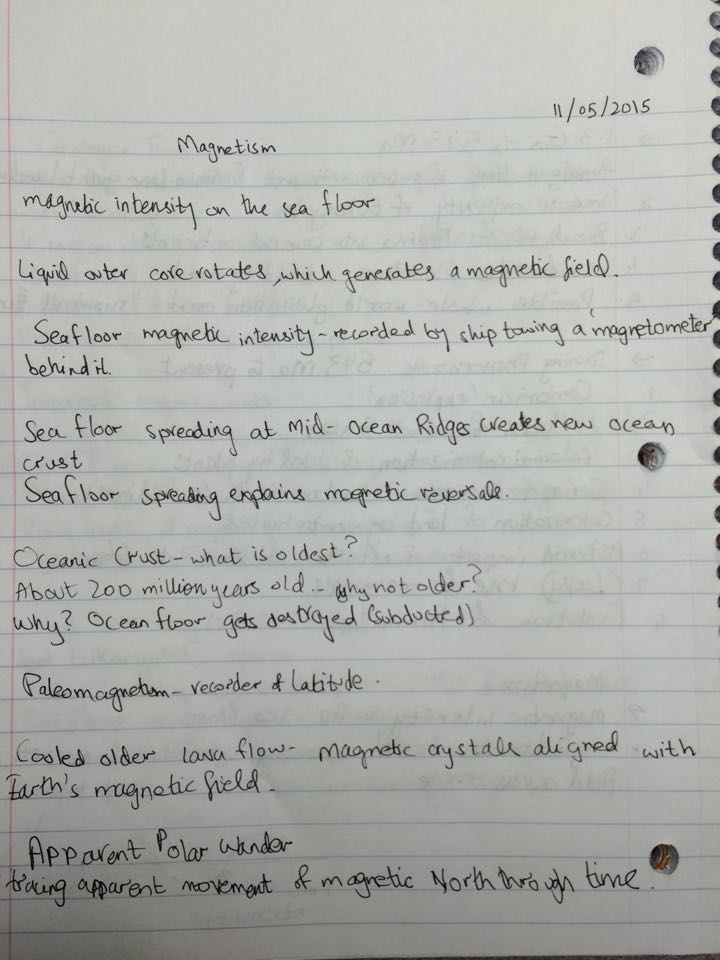 11/05/2015
Magnetism
magnetic intensity on the sea floor
Liquid outer core rotates, which generates a magnetic field.
Seafloor magnetic intensity - recorded by ship towing a magnetometer
behind it.
Sea floor spreading at Mid-Ocean Ridges creates new ocean
crust
Seafloor spreading explains magnetic reversals.
Oceanic Crust - what is oldest?
About 200 million years old.. why not older?
Why? Ocean floor gets destroyed (subducted)
Paleomagnetism - recorder of latitude.
Cooled older lava flow - magnetic crystals aligned with
Earth's magnetic field.
Apparent Polar Wander
tracing apparent movement of magnetic North through time.